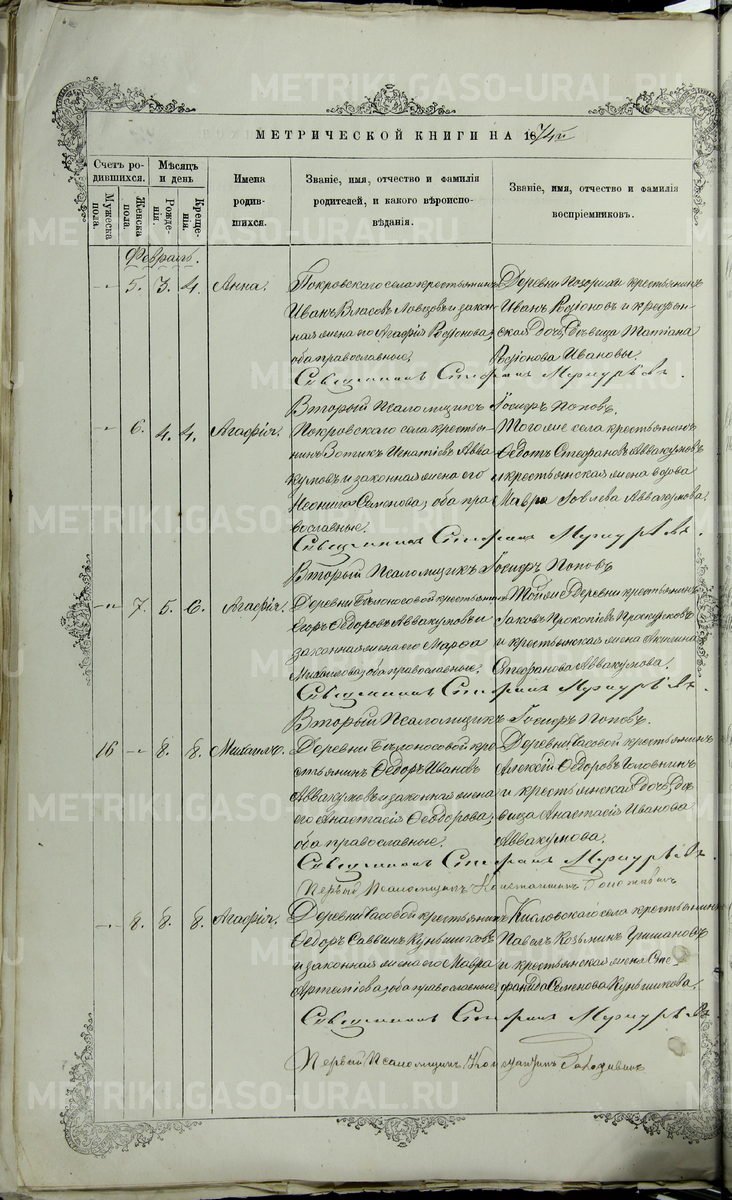 МЕТРИЧЕСКОЙ КНИГИ НА 1874
Счетъ родившихся.
Мѣсяцъ и день
Имена родившихся.
Званіе, имя, отчество и фамилія родителей, и какого вѣроисповѣданія.
Званіе, имя, отчество и фамилія воспріемниковъ.
Мужеска пола.
Женска пола.
Рожденія.
Крещенія.
Февраль.
5. 3. 4. Анна.
Покровскаго села крестьянинъ
Иванъ Власовъ и закон
ная жена его Агафія Родіонова,
оба православные.
Деревни крестьянинъ
Иванъ Родіоновъ и крестьян
ская дочь, дѣвица Татіана
Родіонова Ивановы.
Священникъ Стефанъ
Вторый Псаломщикъ Іосифъ Поповъ.
6. 4. 4. Агафія.
Покровскаго села крестья
нинъ Зотикъ Игнатіевъ Авва
кумовъ и законная жена его
Неонила Семенова, оба пра
вославные.
Тогоже села крестьянинъ
Ѳедотъ Стефановъ Аввакумовъ
и крестьянская жена вдова
Мавра Іовлева Аввакумова.
Священникъ Стефанъ
Вторый Псаломщикъ Іосифъ Поповъ
7. 5. 6. Агафія.
Деревни Бѣлоносовой крестьянинъ
Егоръ Ѳедоровъ Аввакумовъ и
законная жена его Марѳа
Михаилова, оба православные.
Той же деревни крестьянинъ
Іаковъ Прокопіевъ
и крестьянская жена Акилина
Стефанова Аввакумова.
Священникъ Стефанъ
Вторый Псаломщикъ Іосифъ Поповъ.
16 8. 8. Михаилъ.
Деревни Бѣлоносовой кре
стьянинъ Ѳедоръ Ивановъ
Аввакумовъ и законная жена
его Анастасія Ѳеодорова,
оба православные.
Деревни Часовой крестьянинъ
Алексій Ѳедоровъ Головнинъ
и крестьянская дочь, дѣ
вица Анастасія Иванова
Аввакумова.
Священникъ Стефанъ
Первый Псаломщикъ Константинъ
8. 8. 8. Агафія.
Деревни Часовой крестьянинъ
Ѳедоръ Саввинъ
и законная жена его Мавра
Артеміева, оба православные.
Кисловскаго села крестьянинъ
Павелъ Козьминъ Гришановъ
и крестьянская жена Сте
фанида Семенова
Священникъ Стефанъ
Первый Псаломщикъ Константинъ
METRIKI.GASO-URAL.RU